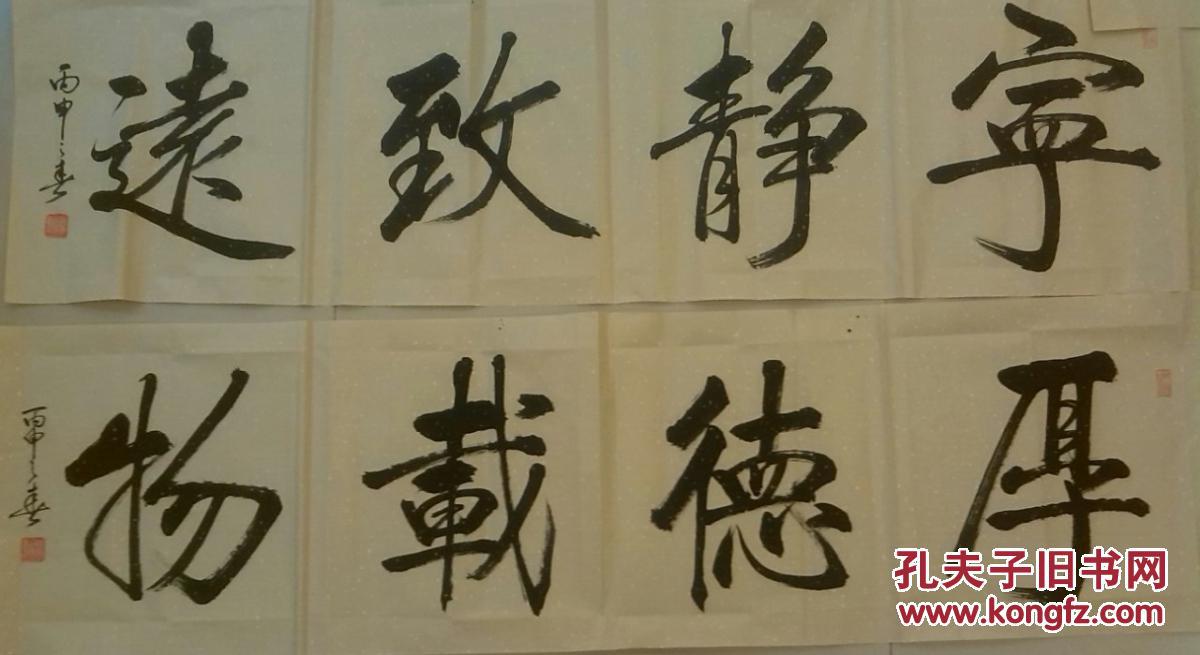 寧静致遠
丙申之春
厚德載物
丙申之春
孔夫子旧书网
www.kongfz.com